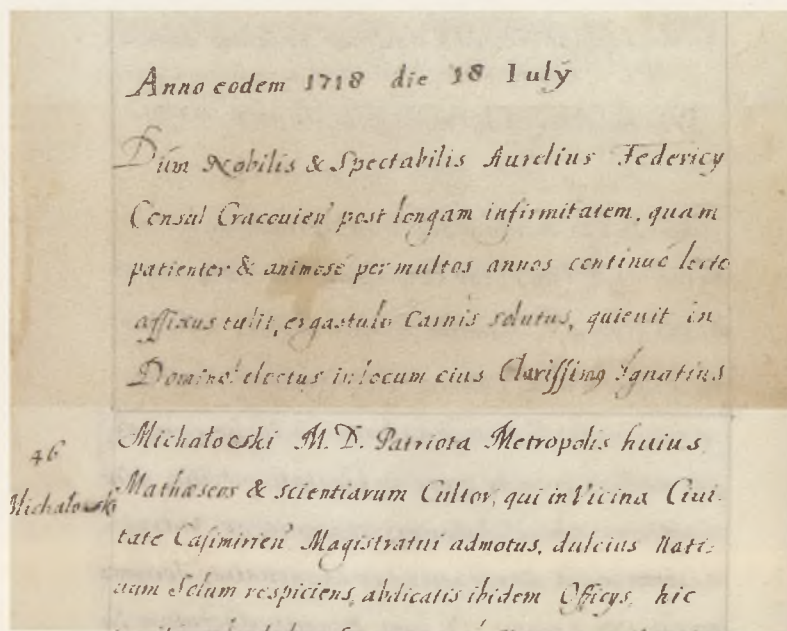 Anno eodem 1718 die 18 Iulÿ
Dum Nobilis & Spectabilis Aurelius Federicy
Consul Cracouien̄ post longam infirmitatem, quam
patienter & animosè per multos annos continuò lecto
affixus tulit, ergastulo Carnis solutus, quieuit in
Domino: electus in locum eius Clarissimq Ignatius
46
Michałowski
Michałowski M. D. Patriota Metropolis huius
Mathæseos & scientiarum Cultor, qui in Vicina Ciui-
tate Casimirien̄ Magistratui admotus, dulcius Nati-
uum Solum respiciens, abdicatis ibidem Officys, hic